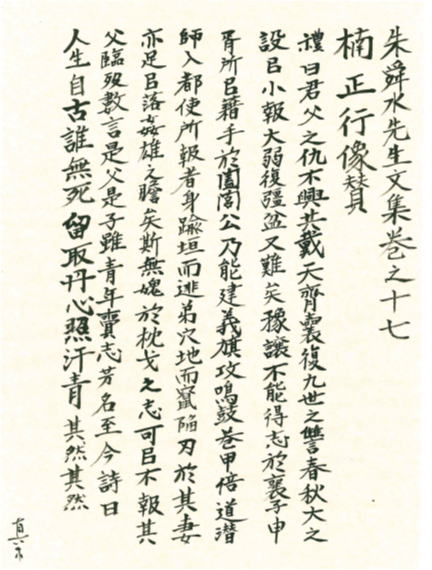 朱舜水先生文集巻之十七
楠正行像賛
禮曰君父之仇不與共戴天齊襄復九世之讐春秋大之
設㠯小報大弱復彊盆又難矣豫讓不能得志於襄子申
胥所㠯藉手於闔閭公乃能建義旗攻鳴鼓巻甲倍道潜
師入都使所報者身踰垣而逃弟穴地而竄陥刃於其妻
亦足㠯落姦雄之膽矣斯無媿於枕戈之志可㠯不報其
父臨歿數言是父是子雖青年賫志芳名至今詩曰
人生自古誰無死留取丹心照汗青其然其然